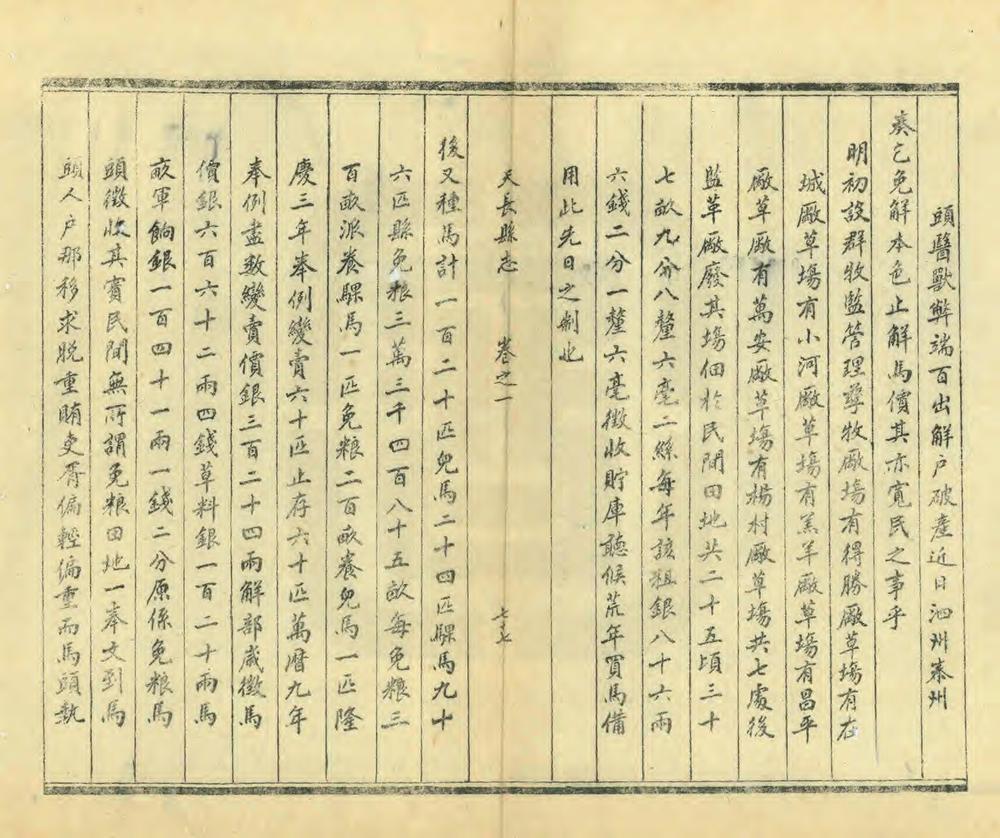 頭醫獸弊端百出解户破產近日泗州泰州
奏乞免解本色止解馬價其亦寬民之事乎
明初設群牧監管理孳牧厰場有得勝厰草塲有在
城厰草塲有小河厰草塲有羔羊厰草塲有昌平
厰草厰有萬安厰草塲有楊村厰草塲共七處後
監革厰廢其塲佃扵民間田地共二十五頃三十
七畝九分八釐六毫二絲每年該租銀八十六兩
六錢二分一釐六毫徵收貯庫聽候荒年買馬備
用此先日之制也
天長縣志 卷之一 七十七
後又種馬計一百二十匹兒馬二十四匹騍馬九十
六匹縣免粮三萬三千四百八十五畝每免粮三
百畝派养騍馬一匹免粮二百畝养兒馬一匹隆
慶三年奉例變賣六十匹止存六十匹萬曆九年
奉例盡數變賣價銀三百二十四兩解部歲徵馬
價銀六百六十二兩四錢草料銀一百二十兩馬
畝軍餉銀一百四十一兩一錢二分原係免粮馬
頭徵收其實民間無所謂免粮田地一奉文到馬
頭人户那移求脱重賄吏胥偏輕偏重而馬頭執